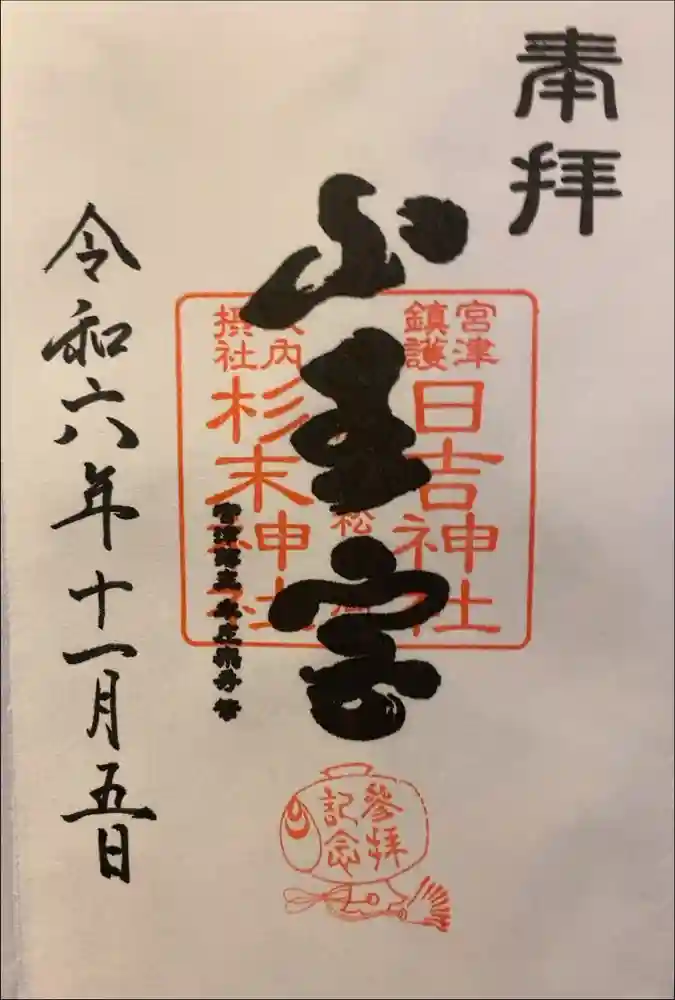 奉拝
山王宮
宮津
鎮護
日吉神社
内
摂社
杉末神社
令和六年十一月五日
参拝
記念